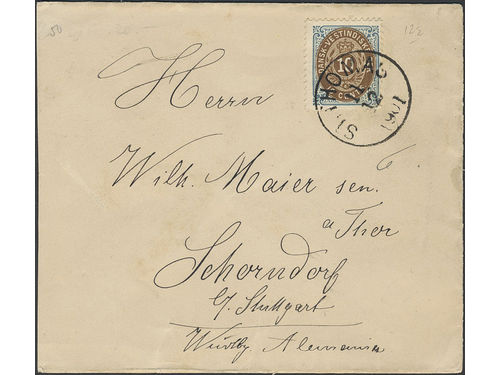 50
12½
DANSK-VESTINDISKE
10
CENT
ST. THOMAS
12
1901
Herrn
Wilh. Maier sen.
a Thor
Schorndorf
b/ Stuttgart
Württbg Alemania